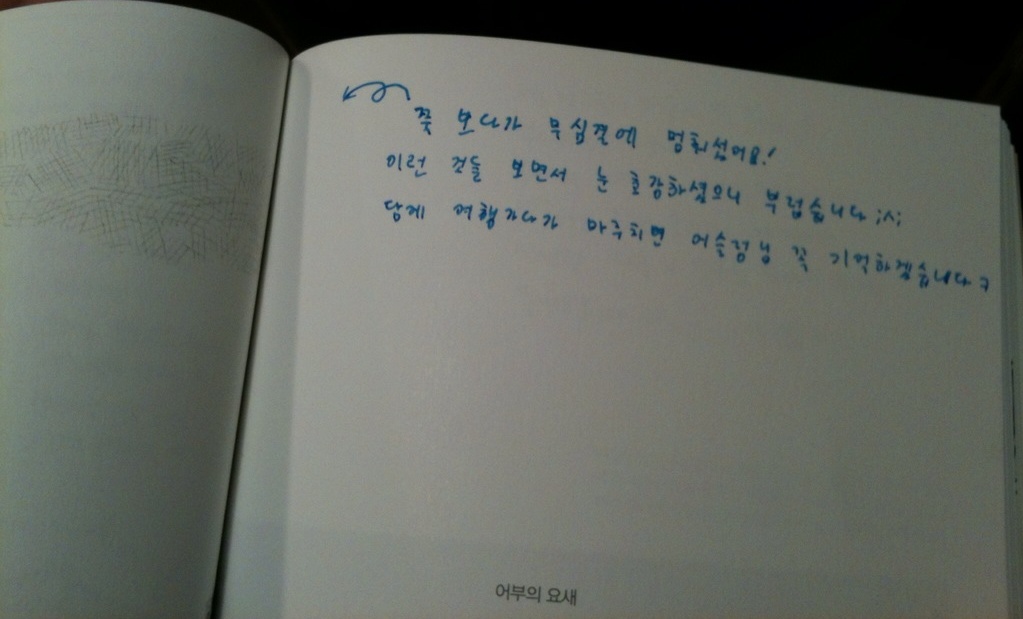 쭉 보다가 무심결에 멈춰섰어요!
이런 것들 보면서 눈 호강하셨으니 부럽습니다 ;ㅅ;
담에 여행가다가 마주치면 어슬렁님 꼭 기억하겠습니다ㅋ
어부의 요새